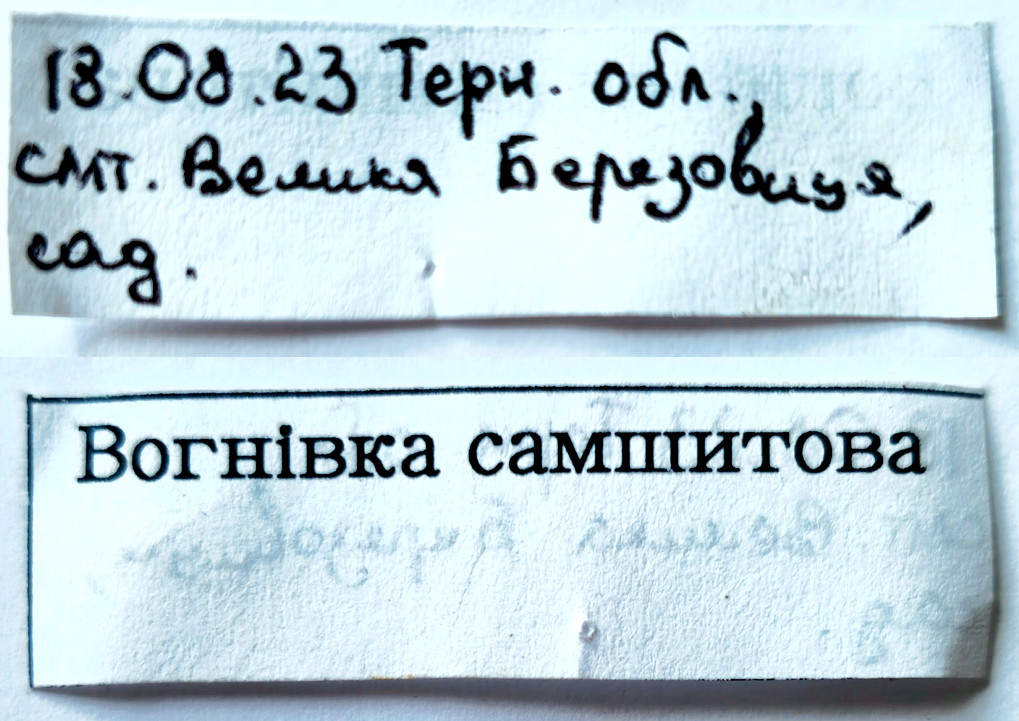 18.08.23 Терн. обл.,
смт. Велика Березовиця,
сад.
Вогнівка самшитова